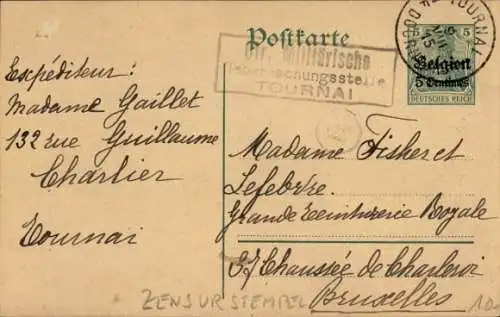 Postkarte
TOURNAI
DOORNIK
5 5
Belgien
5 Centimes
DEUTSCHES REICH
Militärische
Überwachungsstelle
TOURNAI
Expéditeur:
Madame Gaillet
132 rue Guillaume
Charlier
Tournai
Madame Fisheret
Lefebvre
Grande Teinturerie Royale
Chaussée de Charleroi
Bruxelles
ZENSURSTEMPEL